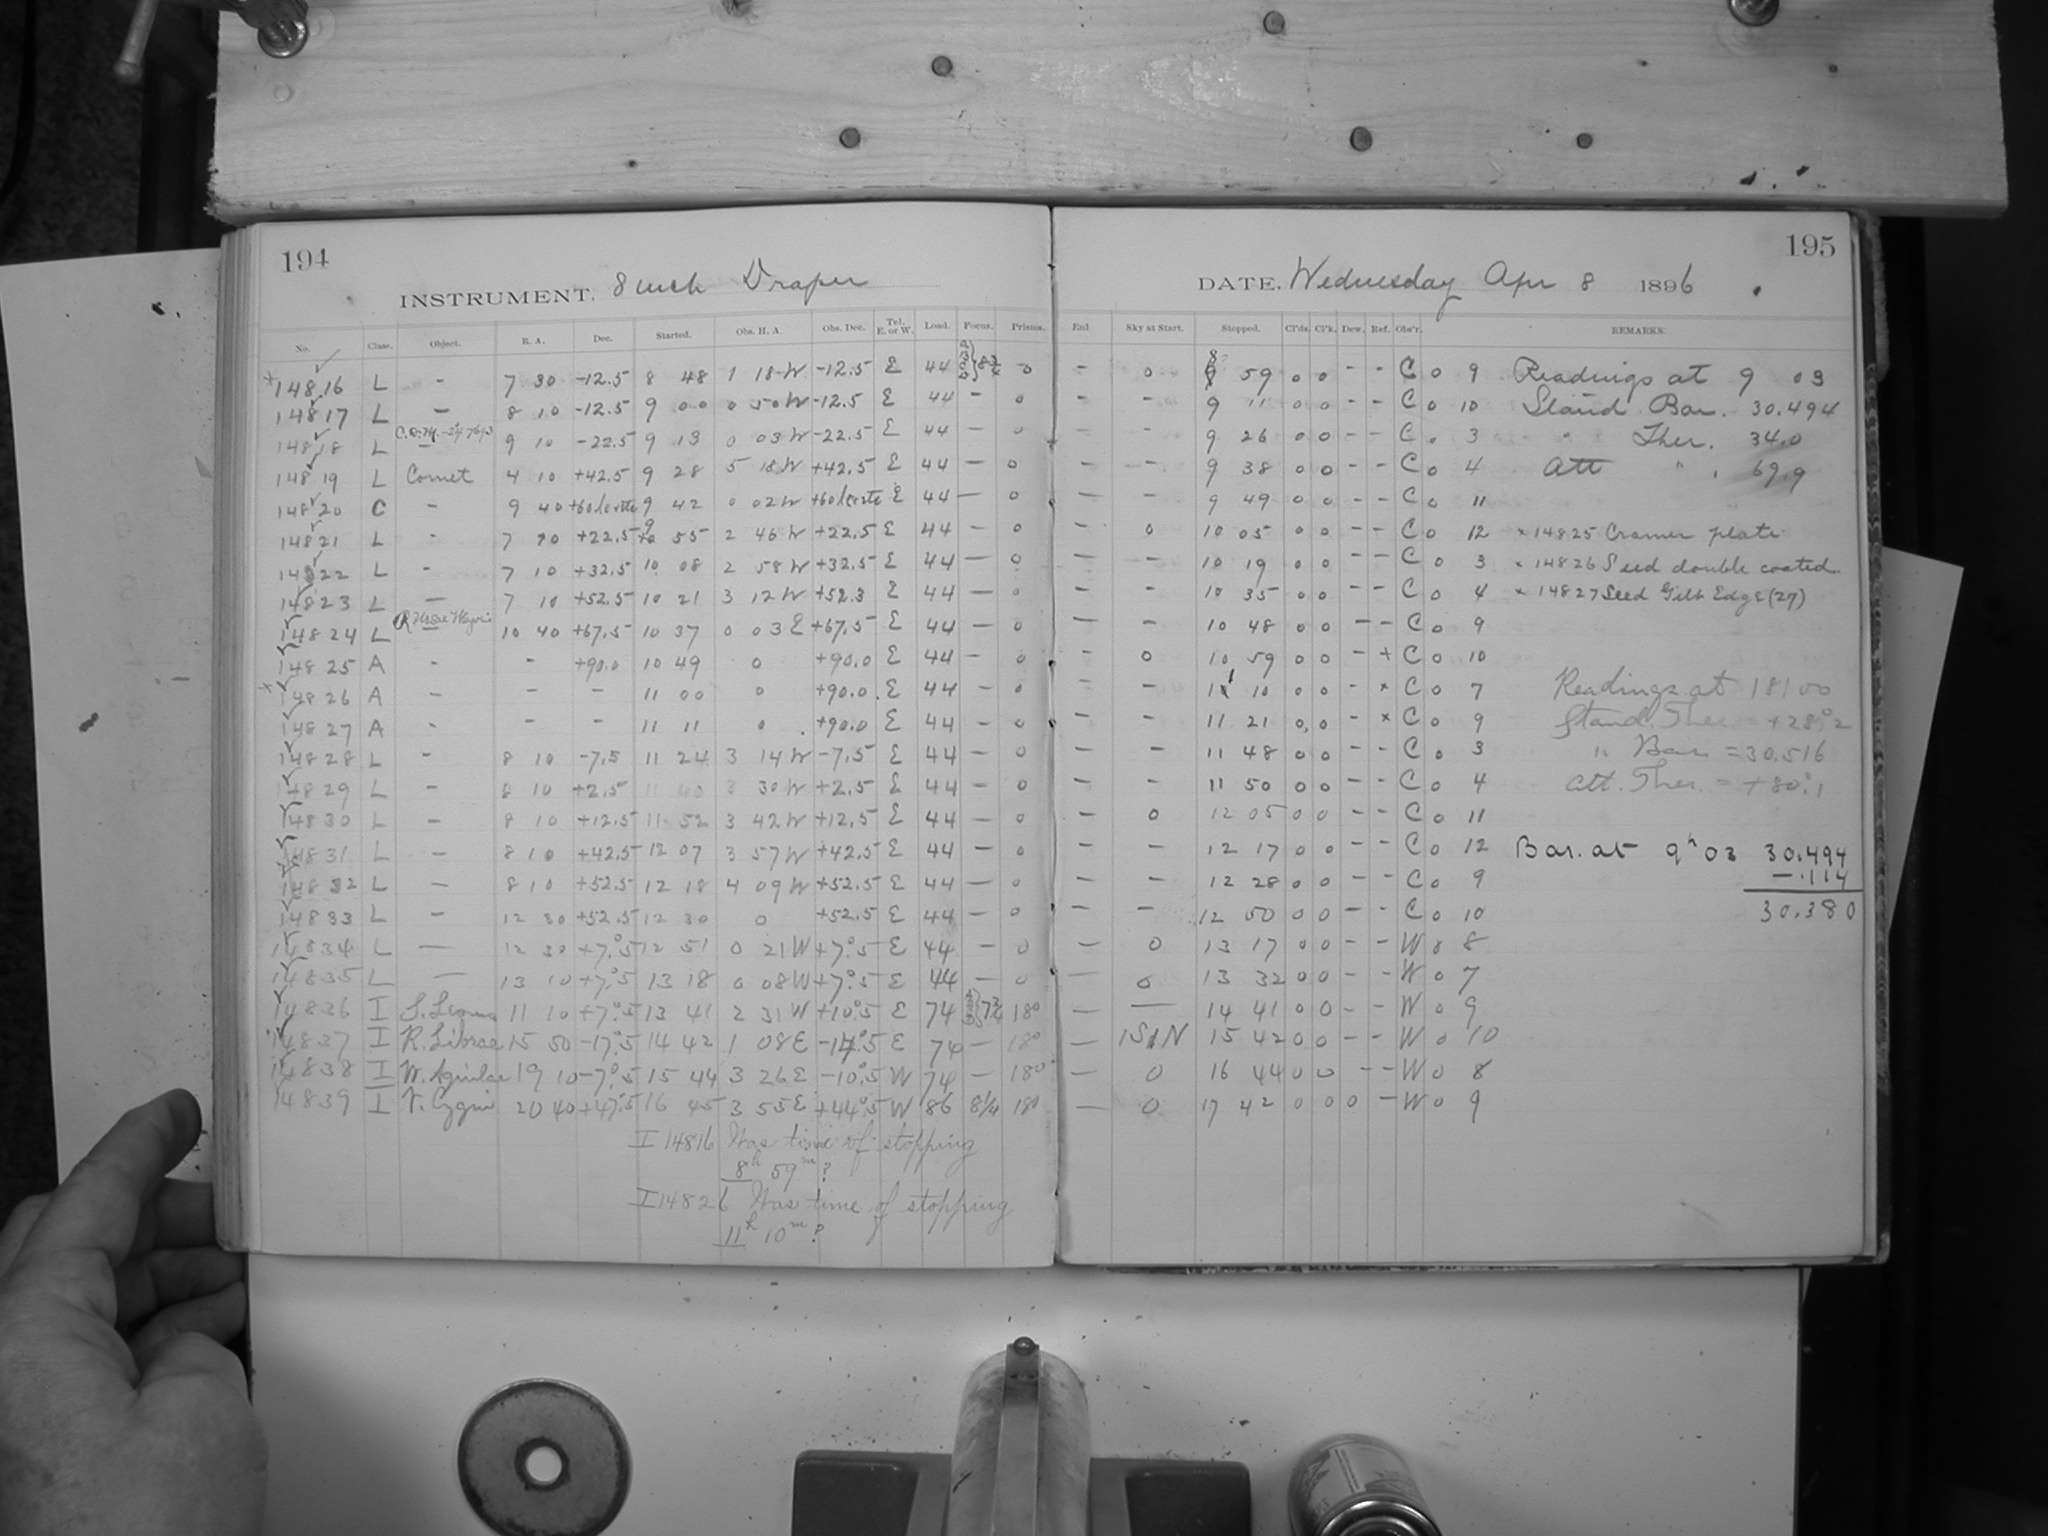 194
INSTRUMENT. 8 inch Draper
No. Class. Object. R. A. Dec. Started. Obs. H. A. Obs. Dec. Tel. E. or W. Load. Focus. Prisms.
14816 L - 7 30 -12.5 8 48 1 18 W -12.5 E 44 8 3/4 0
14817 L - 8 10 -12.5 9 00 0 50 W -12.5 E 44 - 0
14818 L - 9 10 -22.5 9 13 0 03 W -22.5 E 44 - 0
14819 L Comet 4 10 +42.5 9 28 5 18 W +42.5 E 44 - 0
14820 C - 9 40 9 42 0 02 W E 44 - 0
14821 L - 7 10 +22.5 9 55 2 46 W +22.5 E 44 - 0
14822 L - 7 10 +32.5 10 08 2 58 W +32.5 E 44 - 0
14823 L - 7 10 +52.5 10 21 3 12 W +52.3 E 44 - 0
14824 L R Ursae Majoris 10 40 +67.5 10 37 0 03 E +67.5 E 44 - 0
14825 A - - +90.0 10 49 0 +90.0 E 44 - 0
14826 A - - - 11 00 0 +90.0 E 44 - 0
14827 A - - - 11 11 0 +90.0 E 44 - 0
14828 L - 8 10 -7.5 11 24 3 14 W -7.5 E 44 - 0
14829 L - 8 10 +2.5 11 40 3 30 W +2.5 E 44 - 0
14830 L - 8 10 +12.5 11 52 3 42 W +12.5 E 44 - 0
14831 L - 8 10 +42.5 12 07 3 57 W +42.5 E 44 - 0
14832 L - 8 10 +52.5 12 18 4 09 W +52.5 E 44 - 0
14833 L - 12 30 +52.5 12 30 0 +52.5 E 44 - 0
14834 L - 12 30 +7°.5 12 51 0 21 W +7°.5 E 44 - 0
14835 L - 13 10 +7°.5 13 18 0 08 W +7°.5 E 44 - 0
14836 I S. Leonis 11 10 +7°.5 13 41 2 31 W +10°.5 E 74 7 3/4 180
14837 I R. Librae 15 50 -17°.5 14 42 1 08 E E 74 - 180
14838 I W. Aquilae 19 10 -7°.5 15 44 3 26 E -10°.5 W 74 - 180
14839 I V. Cygni 20 40 +47°.5 16 45 3 55 E +44°.5 W 86 8 1/4 180
I 14816 Was time of stopping
8h 59m?
I 14826 Was time of stopping
11h 10m?
195
DATE. Wednesday Apr 8 1896
End Sky at Start. Stopped. Cl'ds. Cl'k. Dew. Ref. Obs'r. REMARKS.
- 0 8 59 0 0 - - C 0 9 Readings at 9 03
- - 9 11 0 0 - - C 0 10 Stand Bar. 30.494
- - 9 26 0 0 - - C 0 3 " Ther. 34.0
- - 9 38 0 0 - - C 0 4 Att " 69.9
- - 9 49 0 0 - - C 0 11
- 0 10 05 0 0 - - C 0 12 × 14825 Cramer plate
- - 10 19 0 0 - - C 0 3 × 14826 Seed double coated
- - 10 35 0 0 - - C 0 4 × 14827 Seed Gilt Edge (27)
- - 10 48 0 0 - - C 0 9
- 0 10 59 0 0 - × C 0 10
- - 11 10 0 0 - × C 0 7 Readings at 18h 00
- - 11 21 0 0 - × C 0 9 Stand. Ther. = +28°.2
- - 11 48 0 0 - - C 0 3 " Bar = 30.516
- - 11 50 0 0 - - C 0 4 Att. Ther. = +80°.1
- 0 12 05 0 0 - - C 0 11
- - 12 17 0 0 - - C 0 12 Bar. at 9h 03 30.494
- - 12 28 0 0 - - C 0 9 -.114
- - 12 50 0 0 - - C 0 10 30.380
- 0 13 17 0 0 - - W 0 8
- 0 13 32 0 0 - - W 0 7
- - 14 41 0 0 - - W 0 9
- 1S1N 15 42 0 0 - - W 0 10
- 0 16 44 0 0 - - W 0 8
- 0 17 42 0 0 0 - W 0 9